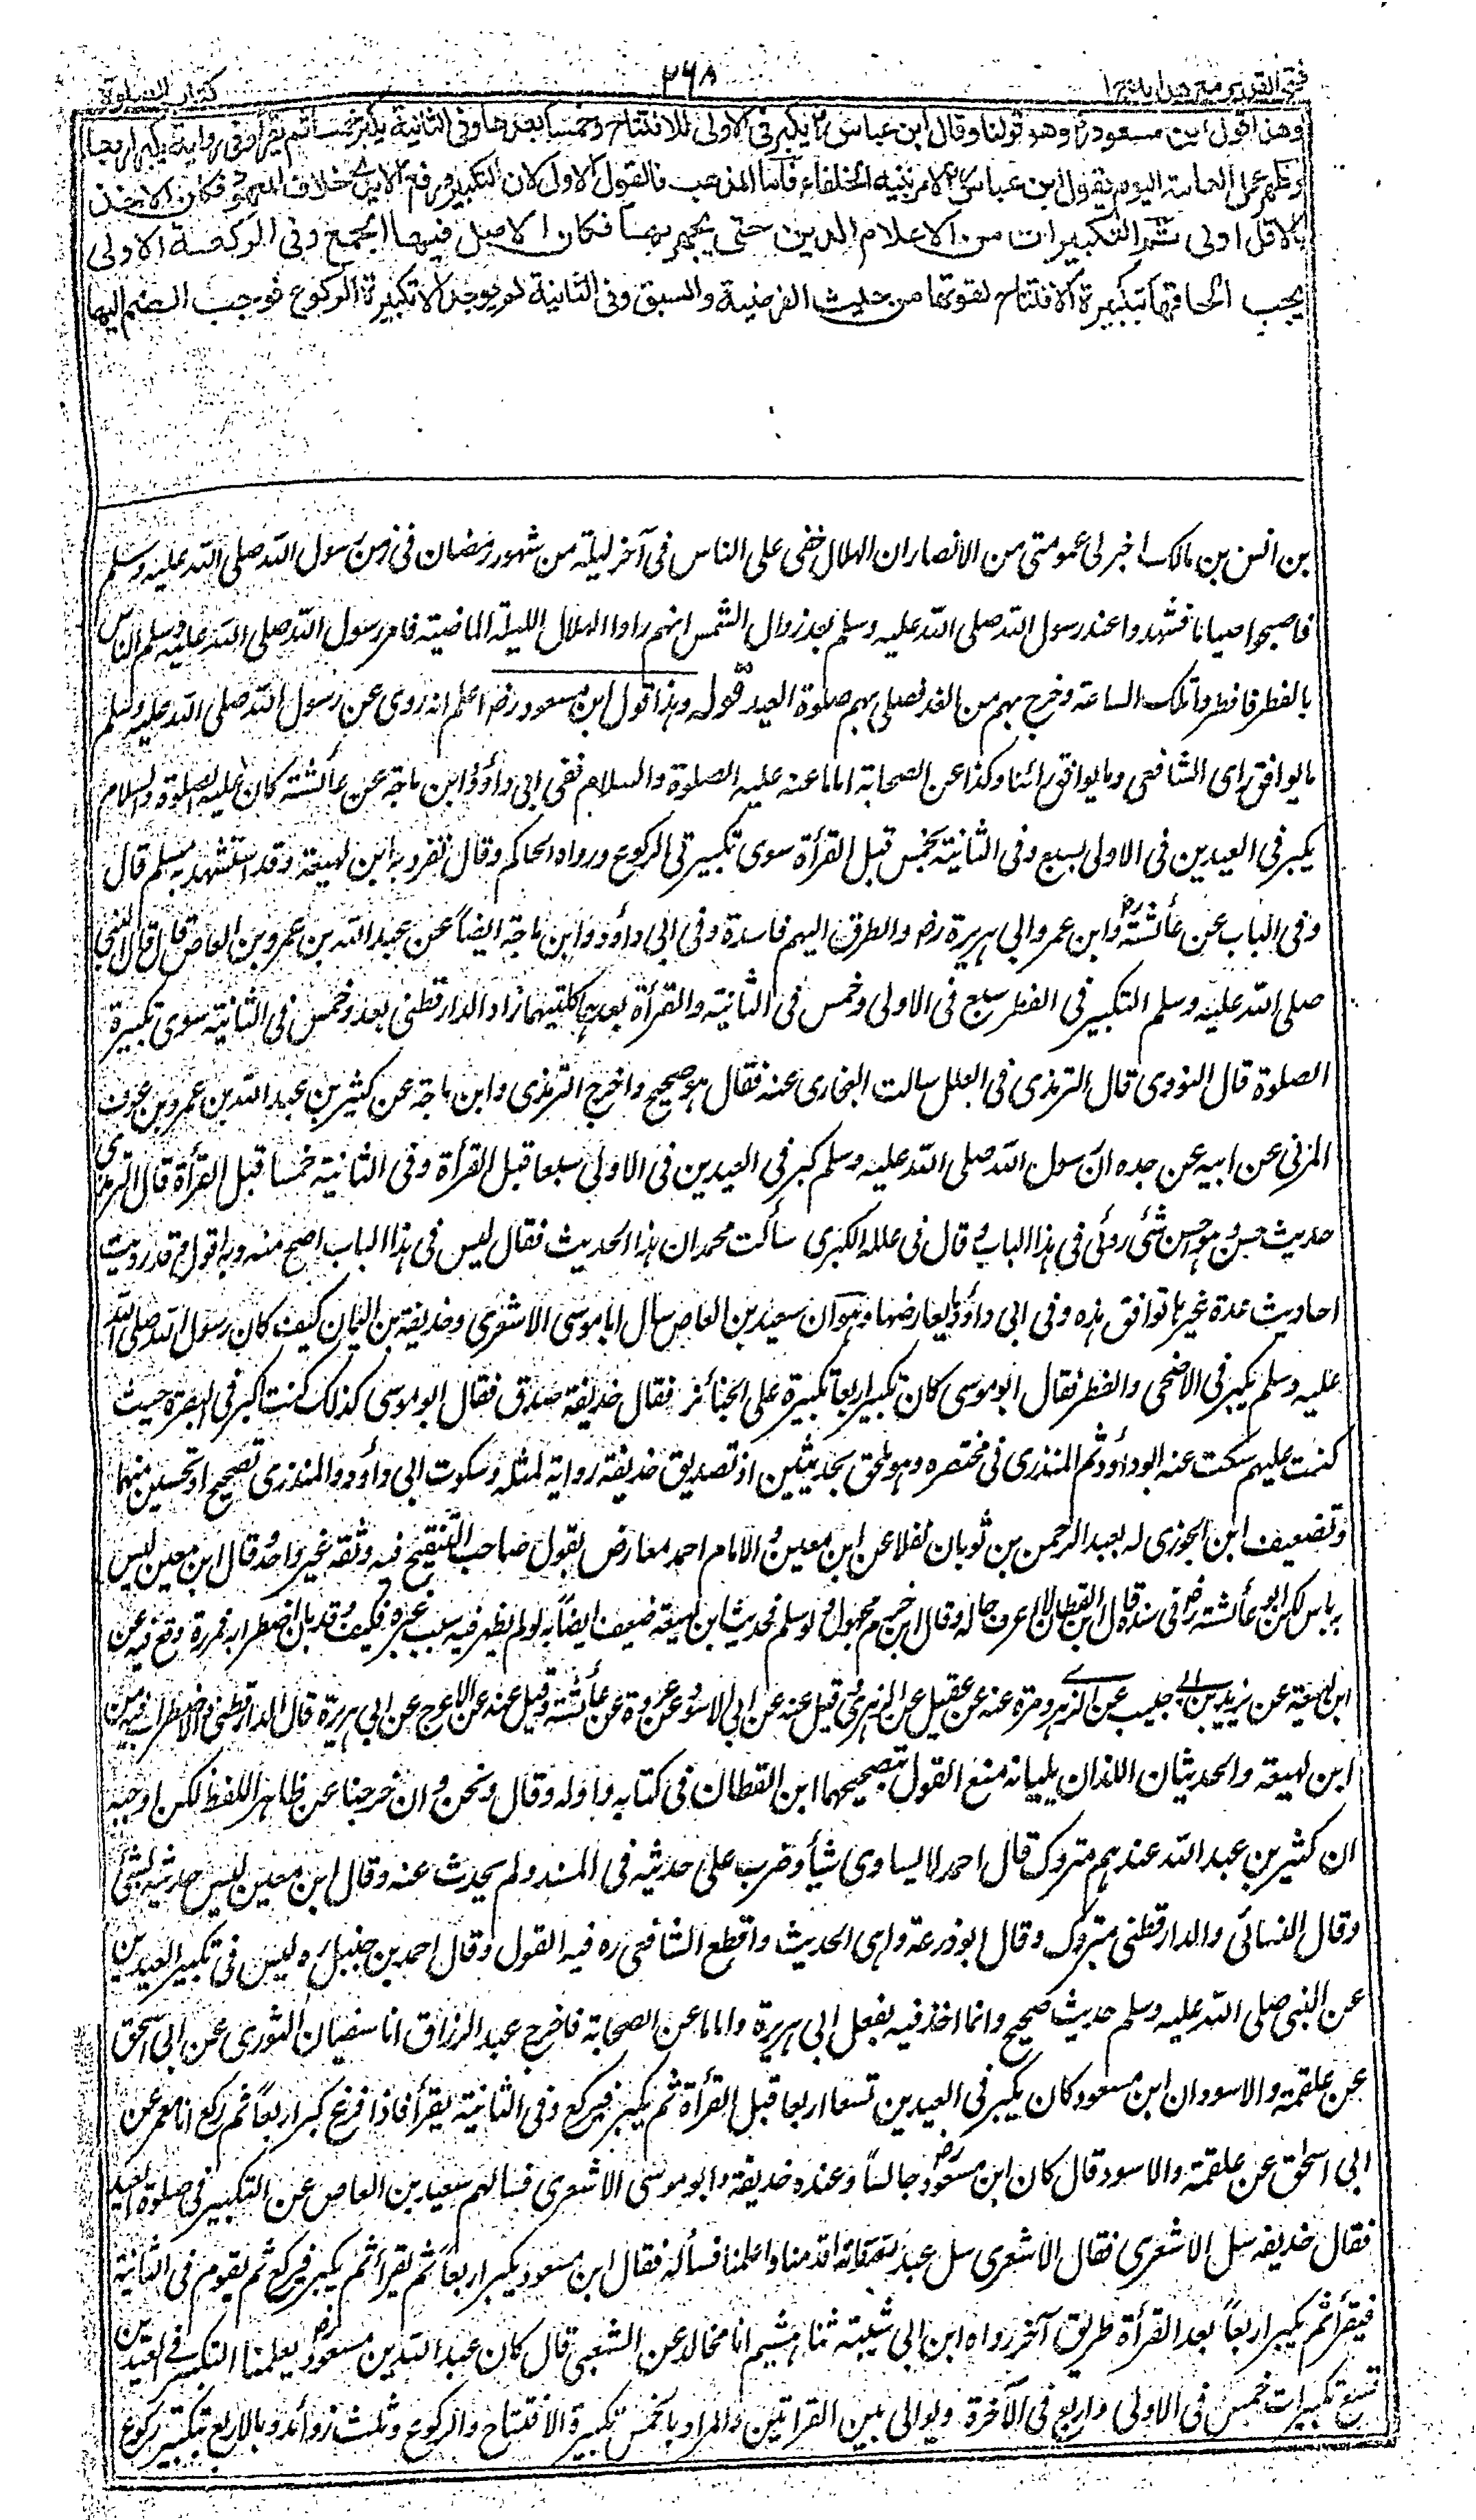 فتح القدير مع هدايه ج ١
٢٦٨
كتاب الصلوة
وهذا قول ابن مسعود رض وهو قولنا وقال ابن عباس رض يكبر في الاولى للافتتاح وخمسا بعدها وفي الثانية يكبر خمسا ثم يقرأ وفي رواية يكبر اربعا
وظهر عمل العامة اليوم بقول ابن عباس رض لامر بنيه الخلفاء فاما المذهب فالقول الاول لان التكبير ورفع الايدي خلاف المعهود فكان الاخذ
بالاقل اولى ثم التكبيرات من الاعلام الدين حتى يجهر بها فكان الاصل فيها الجمع وفي الركعة الاولى
يجب الحاقها بتكبيرة الافتتاح لقوتها من حيث الفرضية والسبق وفي الثانية لم يوجد الا تكبيرة الركوع فوجب الضم اليها
بن انس بن مالك اخبرني عمومتي من الانصار ان الهلال خفى على الناس في آخر ليلة من شهور رمضان في زمن رسول الله صلى الله عليه وسلم
فاصبحوا صياما فشهدوا عند رسول الله صلى الله عليه وسلم بعد زوال الشمس انهم راوا الهلال الليلة الماضية فامر رسول الله صلى الله عليه وسلم الناس
بالفطر فافطروا تلك الساعة وخرج بهم من الغد فصلى بهم صلوة العيد قوله وهذا قول ابن مسعود رض اعلم انه روى عن رسول الله صلى الله عليه وسلم
ما يوافق رأى الشافعي وما يوافق رائنا وكذا عن الصحابة اما ما عنه عليه الصلوة والسلام ففي ابي داؤد وابن ماجة عن عائشة كان عليه الصلوة والسلام
يكبر في العيدين في الاولى بسبع وفي الثانية بخمس قبل القرأة سوى تكبيرتي الركوع ورواه الحاكم وقال تفرد به ابن لهيعة وقد استشهد به مسلم قال
وفي الباب عن عائشة رض وابن عمر وابي هريرة رض والطرق اليهم فاسدة وفي ابي داؤد وابن ماجة ايضاً عن عبد الله بن عمرو بن العاص قال قال النبي
صلى الله عليه وسلم التكبير في الفطر سبع في الاولى وخمس في الثانية والقرأة بعدهما كلتيهما زاد الدارقطني بعد وخمس في الثانية سوى تكبيرة
الصلوة قال النووي قال الترمذي في العلل سالت البخاري عنه فقال هو صحيح واخرج الترمذي وابن ماجة عن كثير بن عبد الله بن عمرو بن عوف
المزني عن ابيه عن جده ان رسول الله صلى الله عليه وسلم كبر في العيدين في الاولى سبعا قبل القرأة وفي الثانية خمسا قبل القرأة قال الترمذي
حديث حسن وهو احسن شئ روئى في هذا الباب وقال في علله الكبرى سألت محمدا عن هذا الحديث فقال ليس في هذا الباب اصح منه وبه اقول وقد رويت
احاديث عدة غيرها توافق هذه وفي ابي داؤد ما يعارضها وهو ان سعيد بن العاص سال ابا موسى الاشعري وحذيفة بن اليمان كيف كان رسول الله صلى الله
عليه وسلم يكبر في الاضحى والفطر فقال ابو موسى كان تكبير اربعا تكبيرة على الجنائز فقال حذيفة صدق فقال ابو موسى كذلك كنت اكبر في البصرة حيث
كنت عليهم سكت عنه ابو داؤد ثم المنذري في مختصره وهو ملحق بحديثين اذ تصديق حذيفة رواية لمثله وسكوت ابي داؤد والمنذري تصحيح او تحسين منهما
وتضعيف ابن الجوزي له بعبد الرحمن بن ثوبان نقلا عن ابن معين والامام احمد معارض بقول صاحب التنقيح فيه وثقه غير واحد وقال ابن معين ليس
به باس لكن ابو عائشة رض في سنده قال ابن القطان لا اعرف حاله وقال ابن حزم مجهول ولو سلم فحديث ابن لهيعة ضعيف ايضا به لو لم يظهر فيه سبب غيره فكيف وقد بان اضطرابه فمرة وقع فيه عن
ابن لهيعة عن يزيد بن ابي حبيب عن الزهري ومرة عنه عن عقيل عن الزهري وقيل عنه عن ابي الاسود عن عروة عن عائشة وقيل عنه عن الاعرج عن ابي هريرة قال الدارقطني والاضطراب فيه من
ابن لهيعة والحديثان اللذان يليانه منع القول بتصحيحهما ابن القطان في كتابه واوله وقال ونحن وان خرجنا عن ظاهر اللفظ لكن اوجبه
ان كثير بن عبد الله عندهم متروك قال احمد لا يساوي شيأ وضرب على حديثه في المسند ولم يحدث عنه وقال ابن معين ليس حديثه بشئ
وقال النسائي والدارقطني متروك وقال ابو زرعة واهي الحديث واقطع الشافعي ره فيه القول وقال احمد بن حنبل ره ليس في تكبير العيدين
عن النبي صلى الله عليه وسلم حديث صحيح وانما اخذ فيه بفعل ابي هريرة واما ما عن الصحابة فاخرج عبد الرزاق انا سفيان الثوري عن ابي اسحق
عن علقمة والاسود ان ابن مسعود كان يكبر في العيدين تسعا اربعا قبل القرأة ثم يكبر فيركع وفي الثانية يقرأ فاذا فرغ كبر اربعاً ثم ركع انا معمر عن
ابي اسحق عن علقمة والاسود قال كان ابن مسعود رض جالساً وعنده حذيفة وابو موسى الاشعري فسالهم سعيد بن العاص عن التكبير في صلوة العيد
فقال حذيفة سل الاشعري فقال الاشعري سل عبد الله فانه اقدمنا واعلمنا فسأله فقال ابن مسعود يكبر اربعاً ثم يقرأ ثم يكبر فيركع ثم يقوم في الثانية
فيقرأ ثم يكبر اربعاً بعد القرأة طريق آخر رواه ابن ابي شيبة ثنا هشيم انا مخالد عن الشعبي قال كان عبد الله بن مسعود رض يعلمنا التكبير في العيدين
تسع تكبيرات خمس في الاولى واربع في الآخرة ويوالي بين القراتين والمراد بالخمس تكبيرة الافتتاح والركوع وثلث زوائد وبالاربع بتكبيرة ركوع